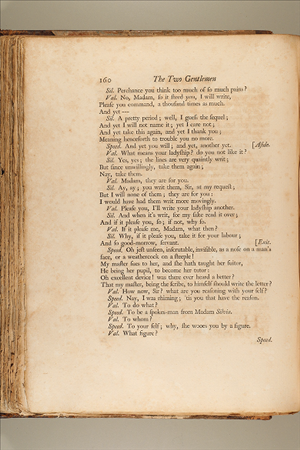 160 The Two Gentlemen
Sil. Perchance you think too much of so much pains?
Val. No, Madam, so it steed you, I will write,
Please you command, a thousand times as much.
And yet —
Sil. A pretty period; well, I guess the sequel;
And yet I will not name it; yet I care not;
And yet take this again, and yet I thank you;
Meaning henceforth to trouble you no more.
Speed. And yet you will; and yet, another yet. [Aside.
Val. What means your ladyship? do you not like it?
Sil. Yes, yes; the lines are very quaintly writ;
But since unwillingly, take them again;
Nay, take them.
Val. Madam, they are for you.
Sil. Ay, ay; you writ them, Sir, at my request;
But I will none of them; they are for you:
I would have had them writ more movingly.
Val. Please you, I'll write your ladyship another.
Sil. And when it's writ, for my sake read it over;
And if it please you, so; if not, why so.
Val. If it please me, Madam, what then?
Sil. Why, if it please you, take it for your labour;
And so good-morrow, servant. [Exit.
Speed. Oh jest unseen, inscrutable, invisible, as a nose on a man's
face, or a weathercock on a steeple!
My master sues to her, and she hath taught her suitor,
He being her pupil, to become her tutor:
Oh excellent device! was there ever heard a better?
That my master, being the scribe, to himself should write the letter?
Val. How now, Sir? what are you reasoning with your self?
Speed. Nay, I was rhiming; 'tis you that have the reason.
Val. To do what?
Speed. To be a spokes-man from Madam Silvia.
Val. To whom?
Speed. To your self; why, she wooes you by a figure.
Val. What figure?
Speed.